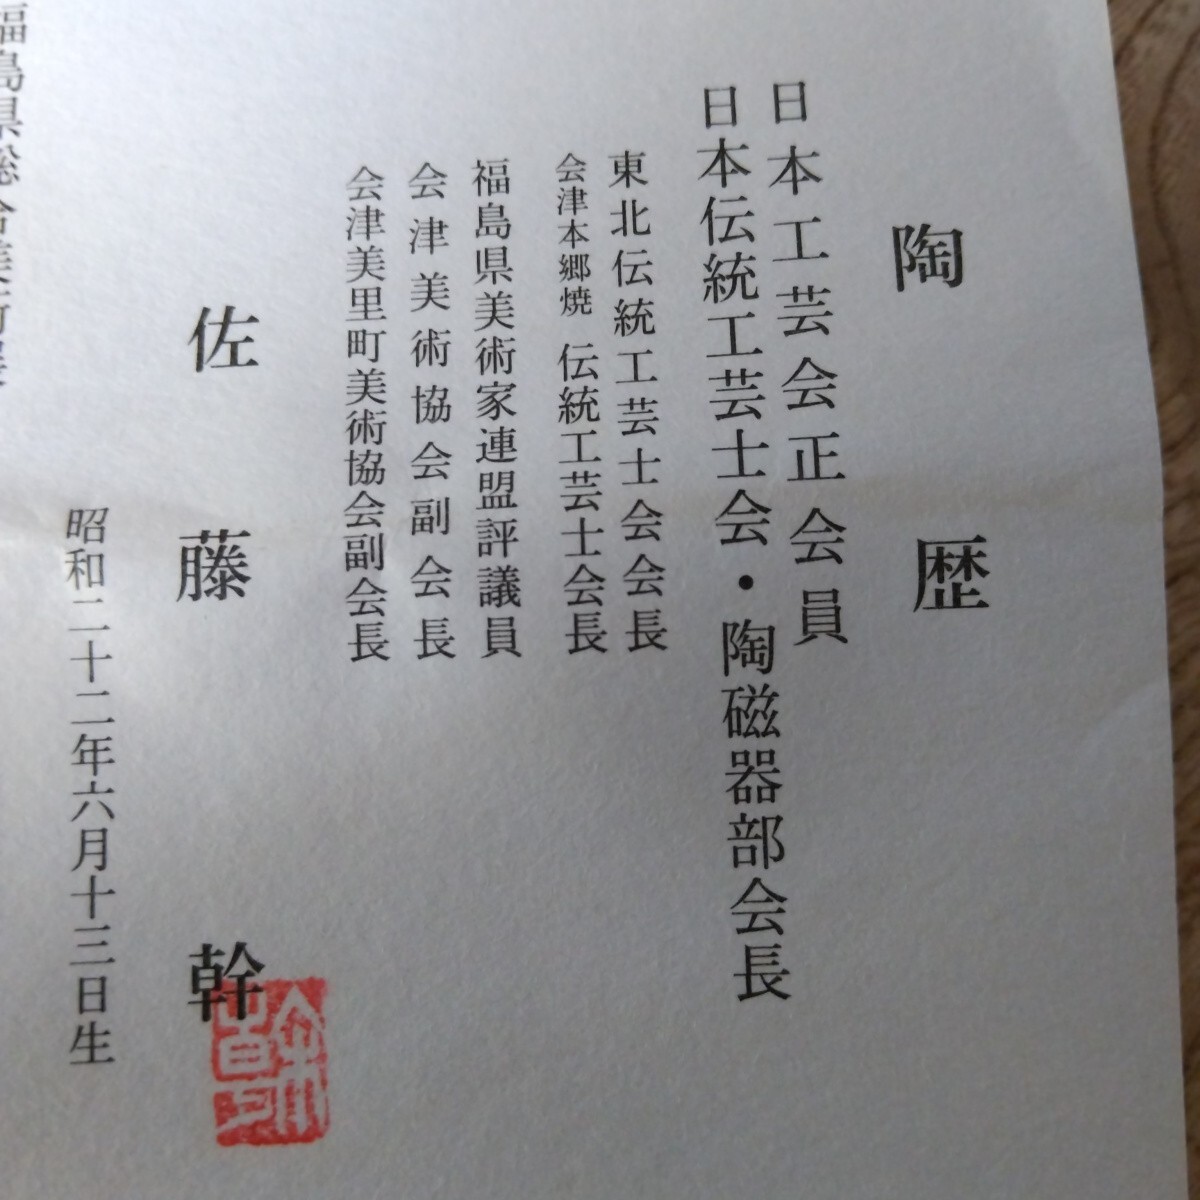 陶歴
日本工芸会正会員
日本伝統工芸士会・陶磁器部会長
東北伝統工芸士会会長
会津本郷焼 伝統工芸士会長
福島県美術家連盟評議員
会津美術協会副会長
会津美里町美術協会副会長
佐藤幹
昭和二十二年六月十三日生
福島県総合美術展